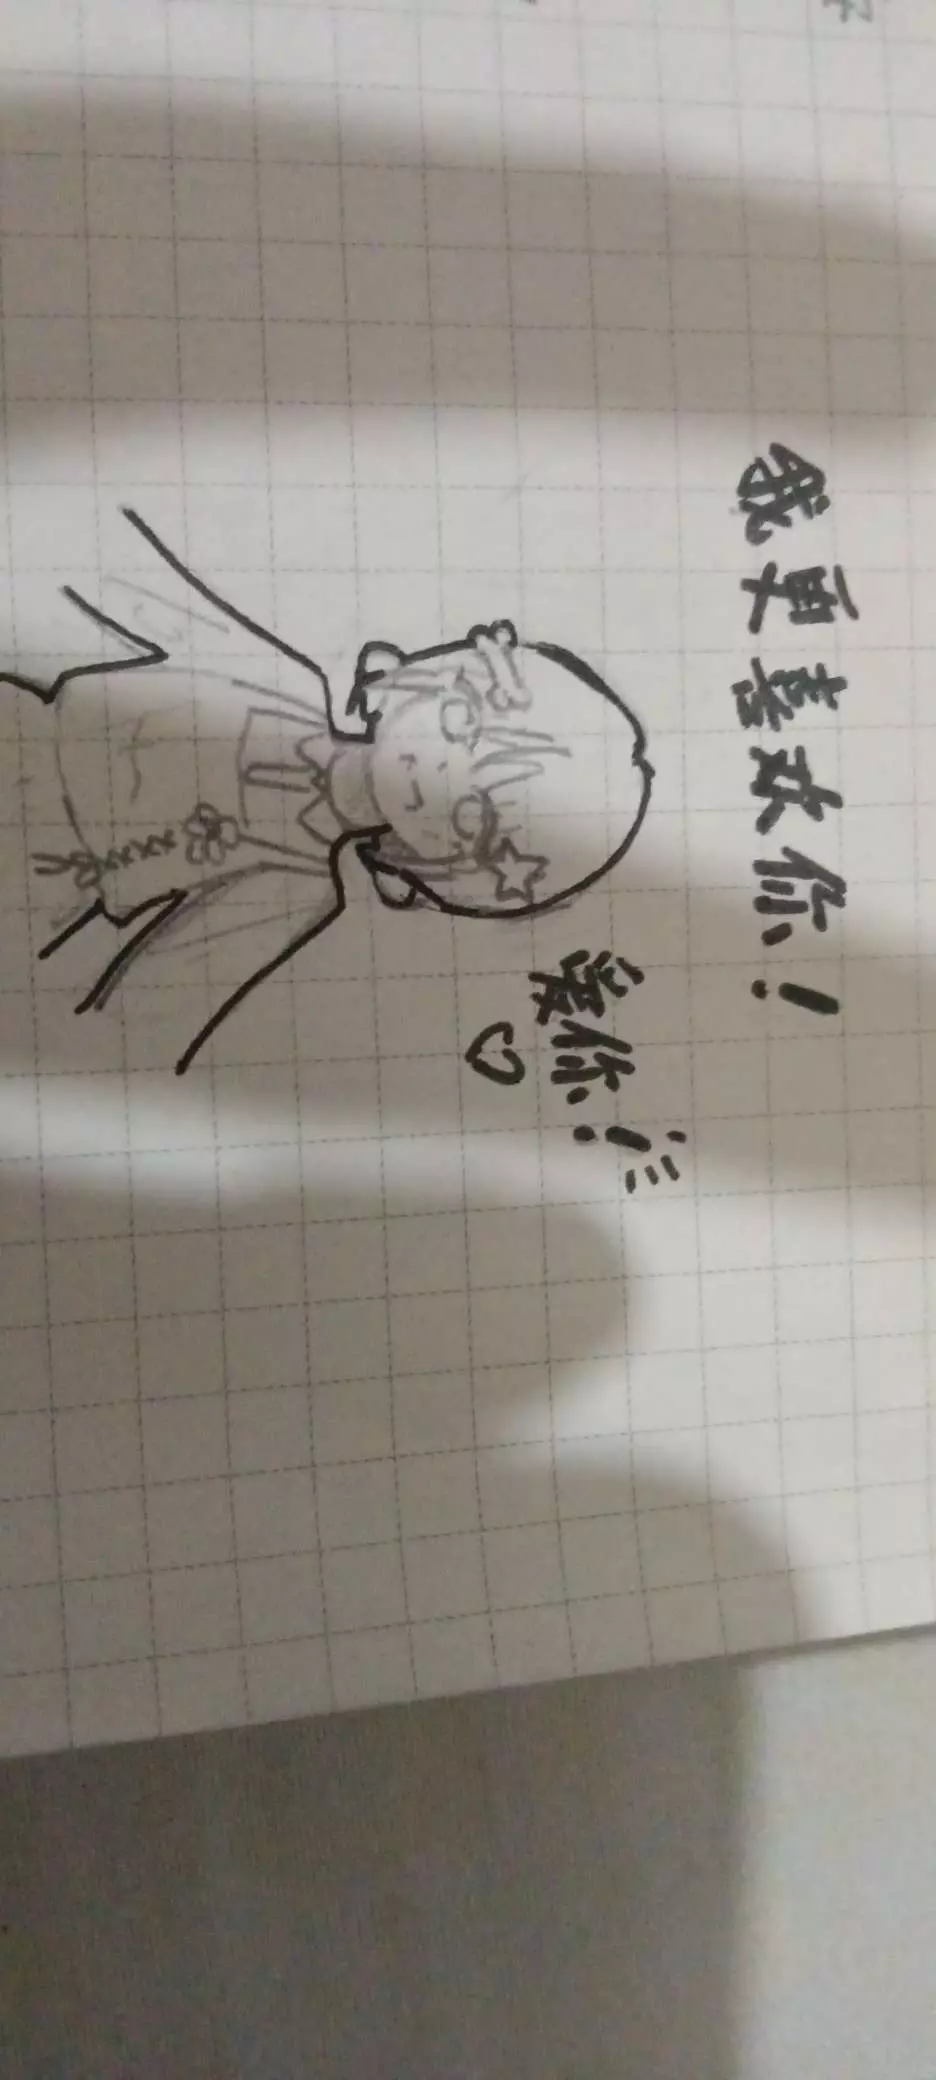 我更喜欢你！
爱你！